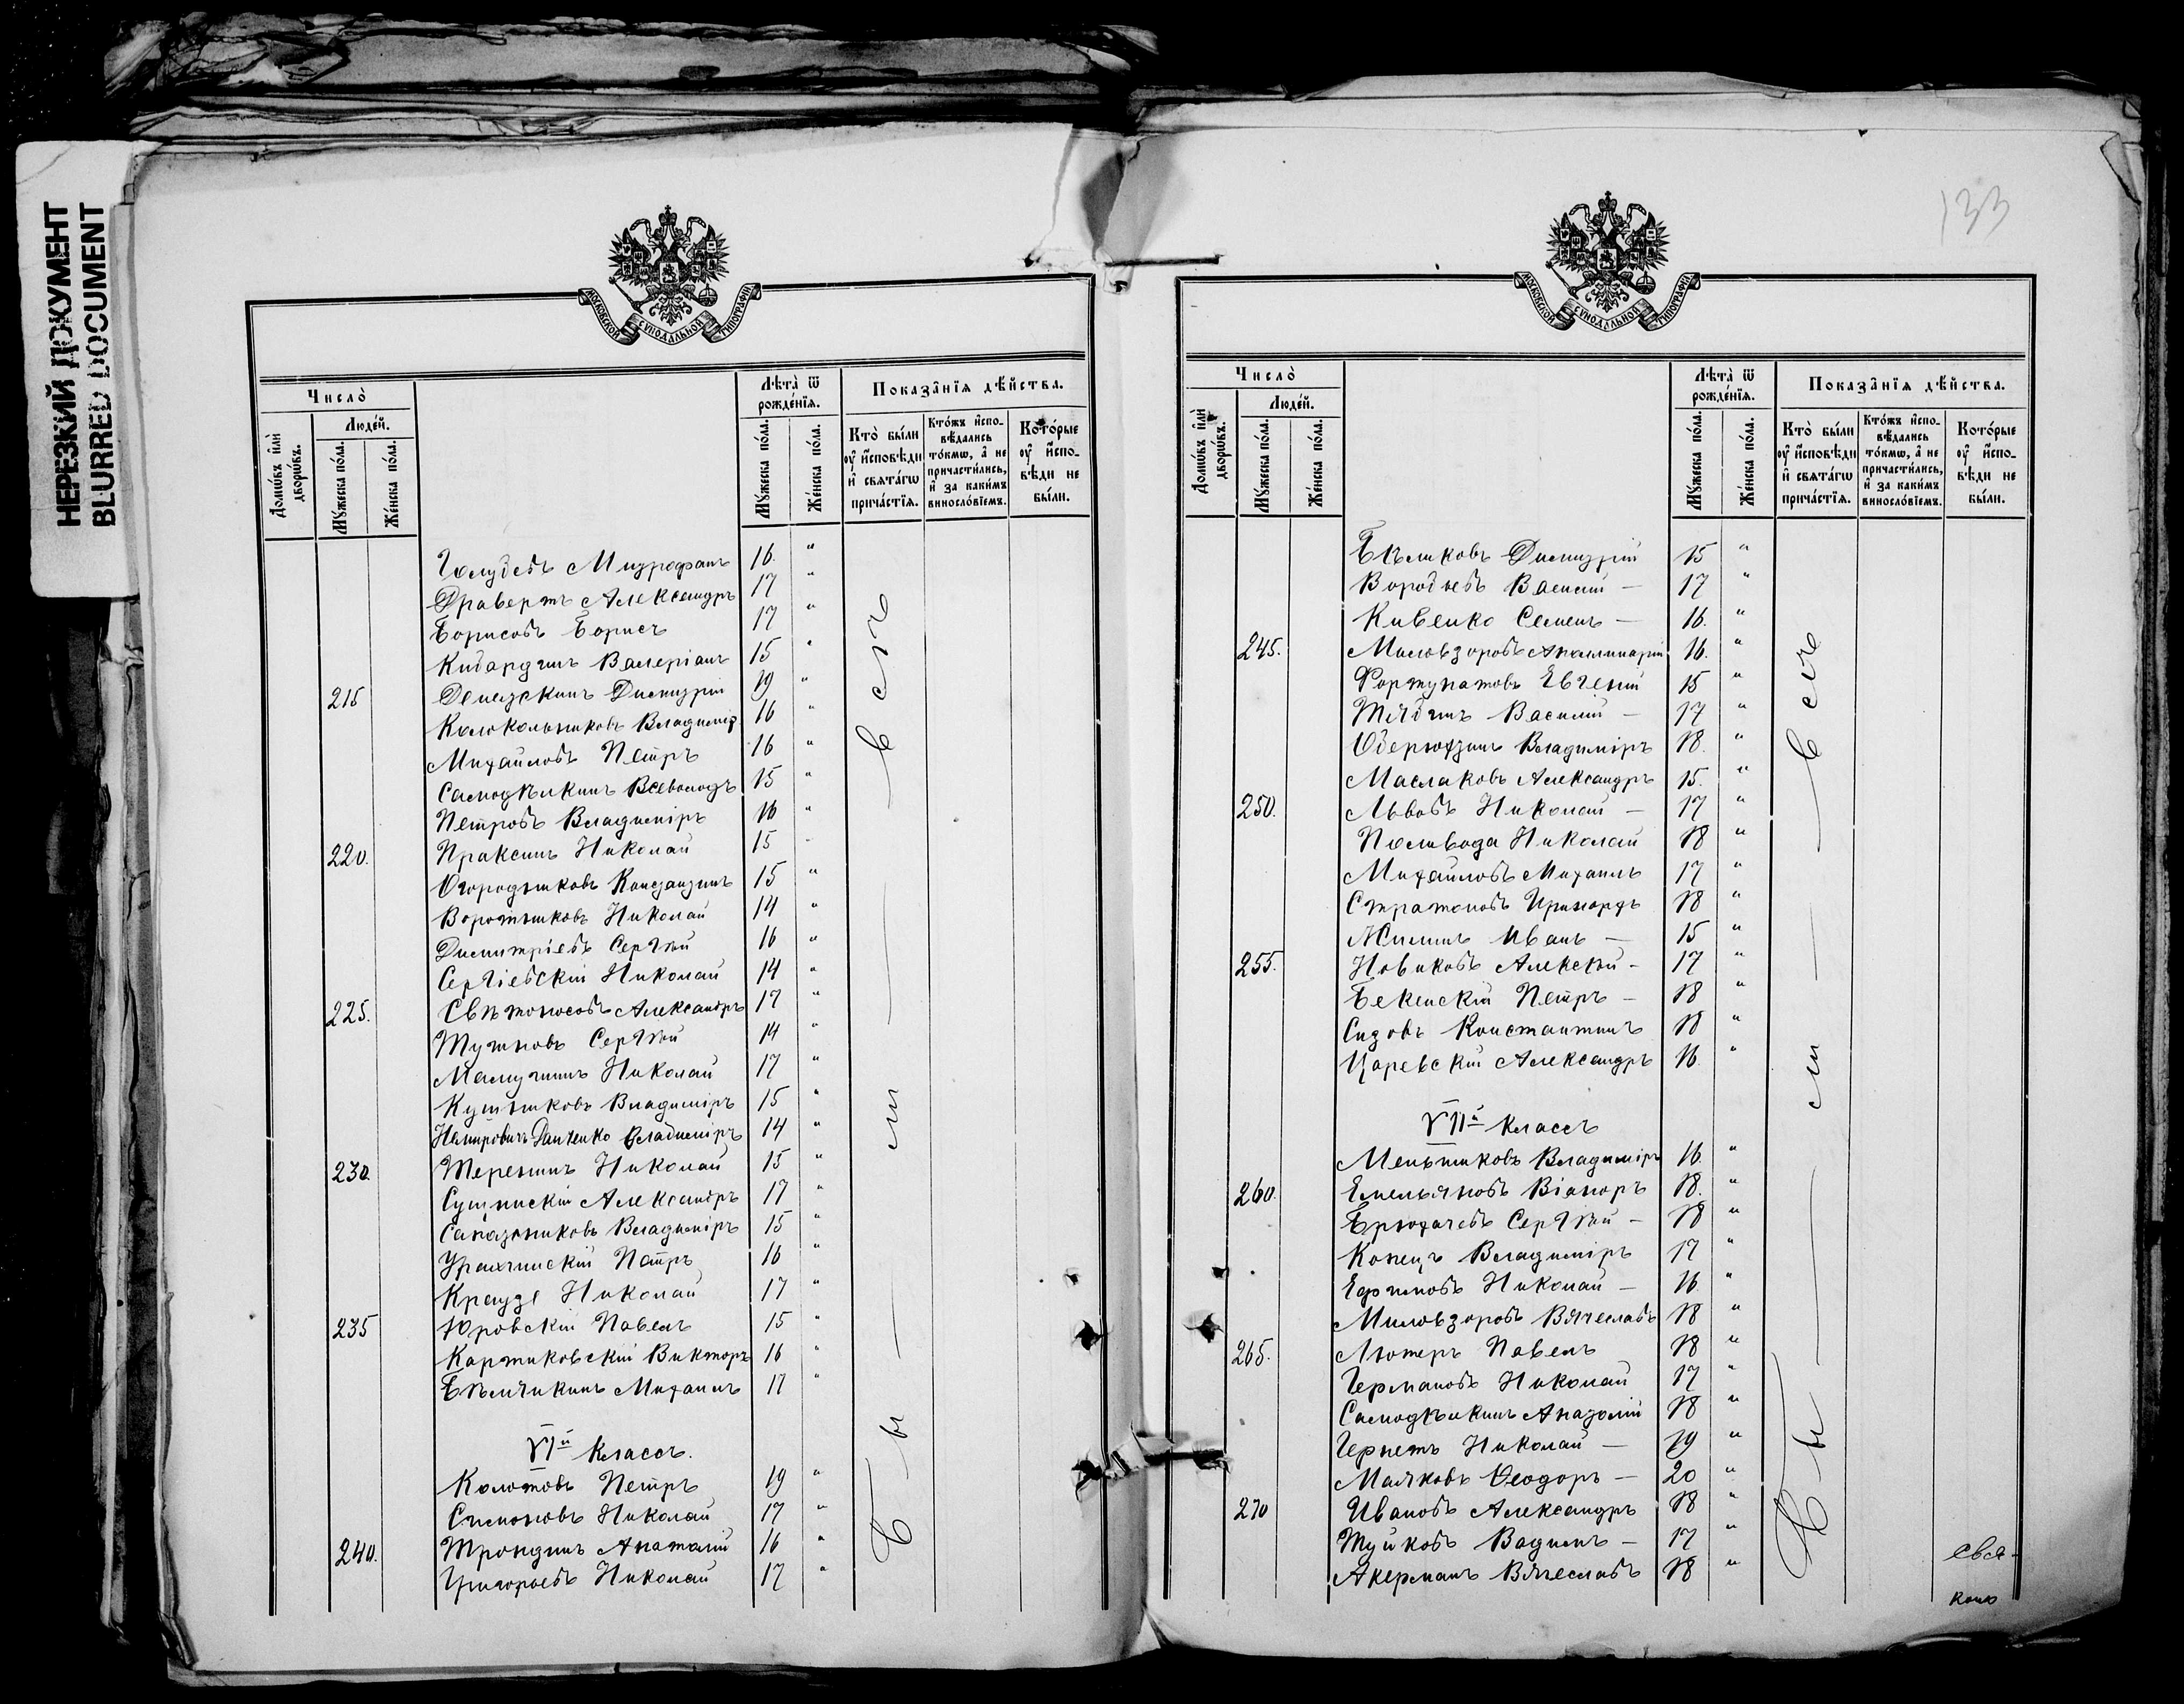 НЕРЕЗКИЙ ДОКУМЕНТ
BLURRED DOCUMENT
МОСКОВСКОЙ СѴНОДАЛЬНОЙ ТИПОГРАФІИ
Число̀
Домѡ́въ и҆лѝ дворѡ́въ.
Люде́й.
Мꙋ́жеска по́ла.
Же́нска по́ла.
Лѣта̀ ѿ рожде́нїѧ.
Мꙋ́жеска по́ла.
Же́нска по́ла.
Показа̑нїѧ дѣ́йства.
Кто̀ бы́ли ᲂу҆ и҆́сповѣди и҆ свѧта́гѡ прича́стїѧ.
Кто́жъ и҆спо-вѣ́дались то́кмѡ, а҆ не причасти́лись, и҆ за каки́мъ виносло́вїемъ.
Кото́рые ᲂу҆ и҆́спо-вѣди не бы́ли.
Голубевъ Митрофанъ 16. "
Дравертъ Александръ 17 "
Борисовъ Борисъ 17 "
Кибардинъ Валеріанъ 15 "
215 Димитрій 19 "
Колокольниковъ Владиміръ 16 "
Михайловъ Петръ 16 "
Самодѣлкинъ Всеволодъ 15 "
Петровъ Владиміръ 16 "
220. Праксинъ Николай 15 "
Огородниковъ Константинъ 15 "
Воротниковъ Николай 14 "
Димитріевъ Сергѣй 16 "
Сергіевскій Николай 14 "
225. Свѣтоносовъ Александръ 17 "
Сергѣй 14 "
Николай 17 "
Владиміръ 15 "
Немировичъ Данченко Владиміръ 14 "
230. Терешинъ Николай 15 "
Александръ 17 "
Сапожниковъ Владиміръ 15 "
Петръ 16 "
Краузе Николай 17 "
235 Юровскій Павелъ 15 "
Картиковскій Викторъ 16 "
Бѣлячкинъ Михаилъ 17 "
VIй классъ.
Колотовъ Петръ 19 "
Симоновъ Николай 17 "
240. Трондинъ Анатолій 16 "
Григорьевъ Николай 17 "
Были всѣ
133
МОСКОВСКОЙ СѴНОДАЛЬНОЙ ТИПОГРАФІИ
Число̀
Домѡ́въ и҆лѝ дворѡ́въ.
Люде́й.
Мꙋ́жеска по́ла.
Же́нска по́ла.
Лѣта̀ ѿ рожде́нїѧ.
Мꙋ́жеска по́ла.
Же́нска по́ла.
Показа̑нїѧ дѣ́йства.
Кто̀ бы́ли ᲂу҆ и҆́сповѣди и҆ свѧта́гѡ прича́стїѧ.
Кто́жъ и҆спо-вѣ́дались то́кмѡ, а҆ не причасти́лись, и҆ за каки́мъ виносло́вїемъ.
Кото́рые ᲂу҆ и҆́спо-вѣди не бы́ли.
Бѣликовъ Димитрій 15 "
Воробьевъ Василій — 17 "
Кивенко Семенъ — 16. "
245. Миловзоровъ Апаллинарій 16. "
Фортунатовъ Евгеній 15 "
Тябинъ Василій — 17 "
Оберюхтинъ Владиміръ 18. "
Маслаковъ Александръ 15. "
250. Львовъ Николай — 17 "
Поливода Николай 18 "
Михайловъ Михаилъ 17 "
Стратоновъ Иринархъ 18 "
Жилинъ Иванъ — 15 "
255. Новиковъ Алексѣй - 17 "
Бекенскій Петръ — 18 "
Сизовъ Константинъ 18 "
Царевскій Александръ 16 "
VIIй классъ
Меньшиковъ Владиміръ 16 "
260. Емельяновъ Віаноръ 18. "
Брюхачевъ Сергѣй — 18 "
Конецъ Владиміръ 17 "
Ефимовъ Николай — 16 "
Миловзоровъ Вячеславъ 18 "
265. Лютеръ Павелъ 18 "
Германовъ Николай 17 "
Самодѣлкинъ Анатолій 18 "
Гернетъ Николай — 19 "
Малковъ Ѳеодоръ — 20 "
270 Ивановъ Александръ 18 "
Туйковъ Вадимъ — 17 "
Акерманъ Вячеславъ 18 "
Были всѣ
Свя-